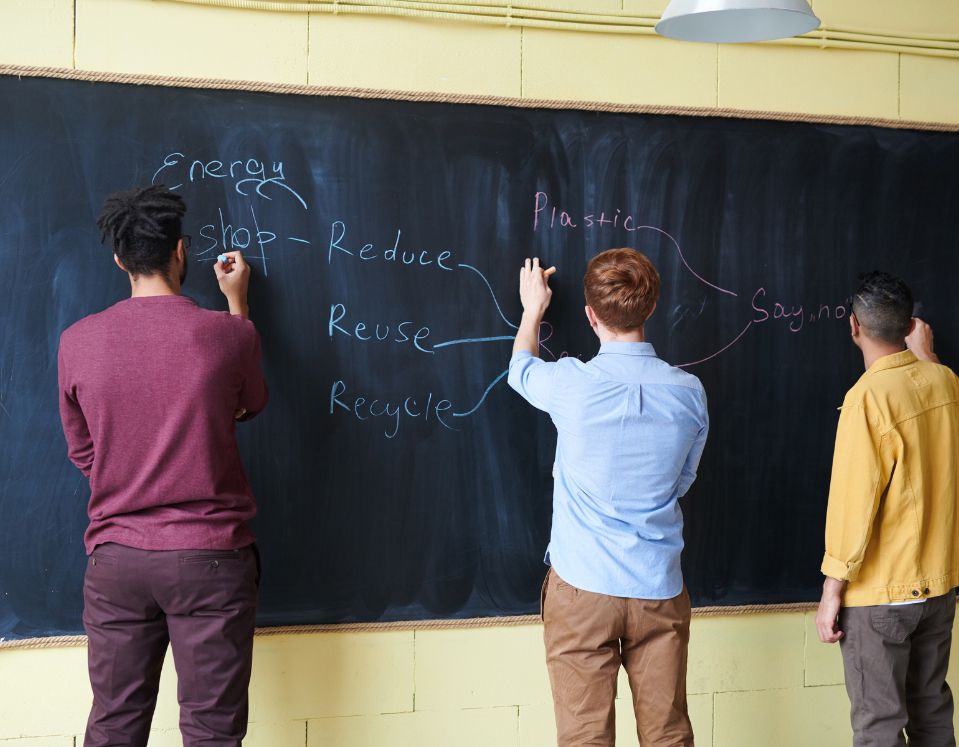 Energy
shop
Reduce
Reuse
Recycle
Plastic
Say no